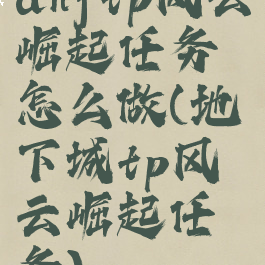 dnftp风云
崛起任务
怎么做(地
下城tp风
云崛起任
务)